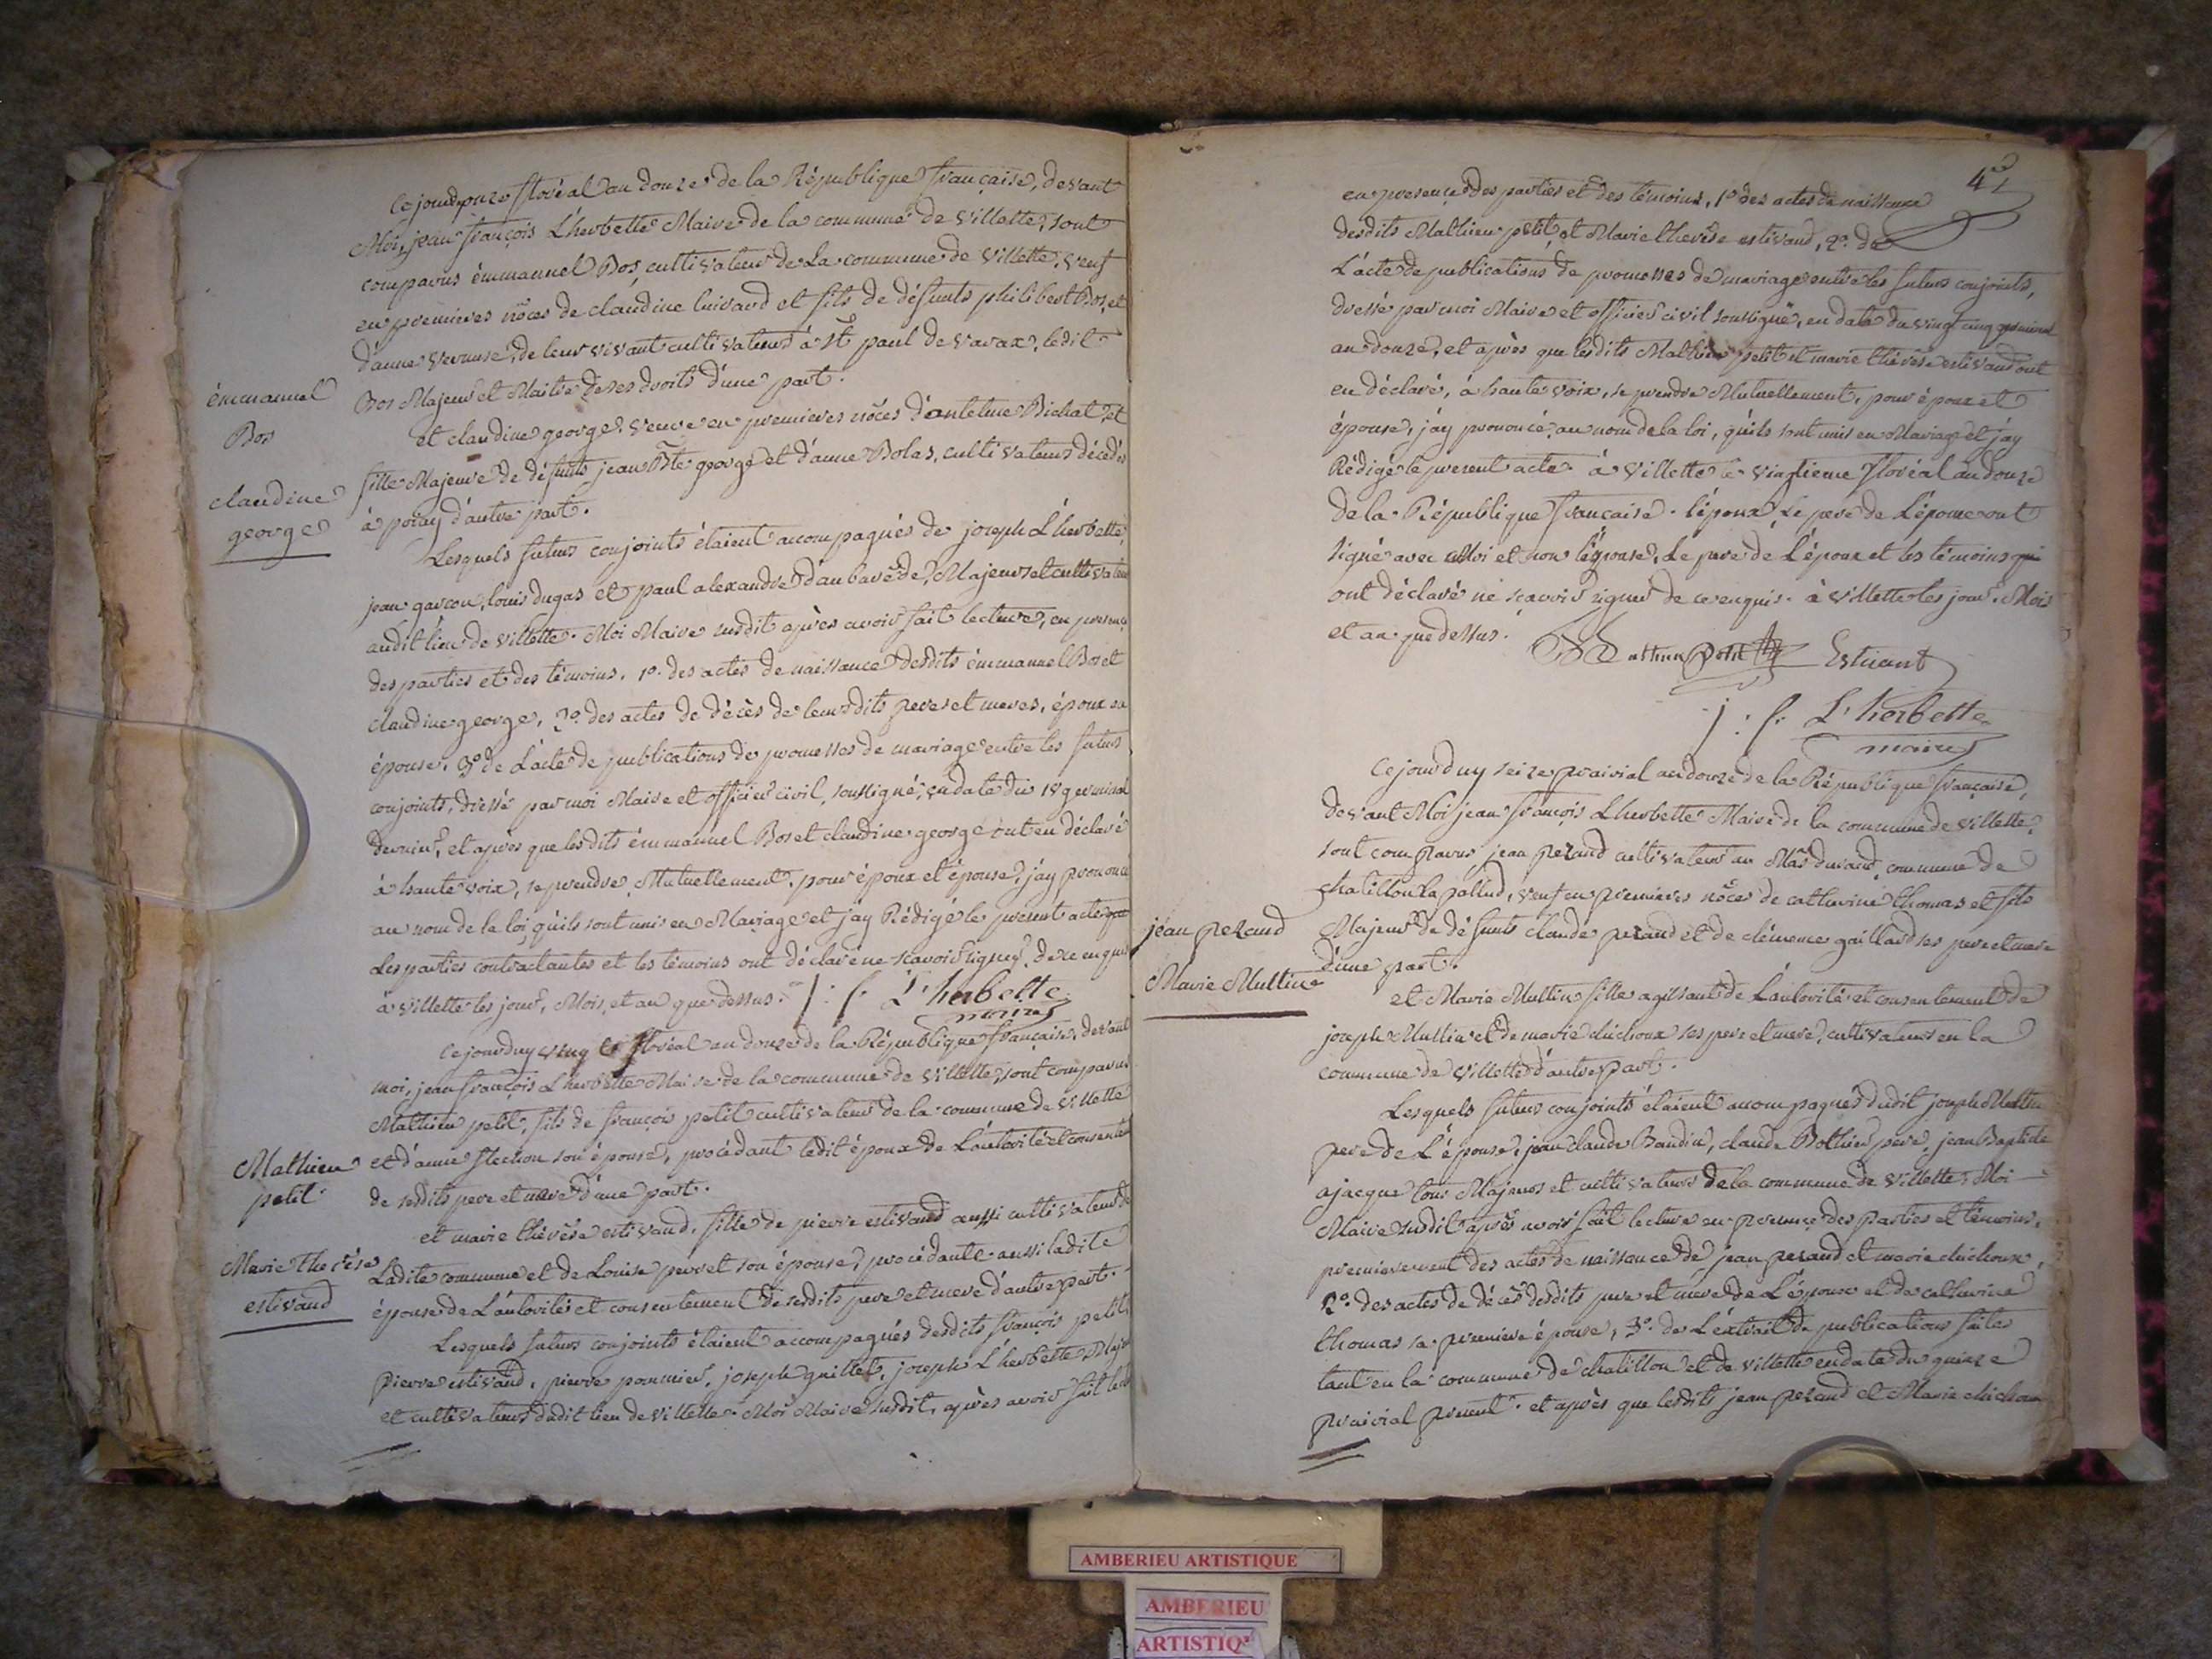 Ce jourd onze floréal an douze de la République française, devant
Moi, jean françois Lherbette Maire de la commune de villette, sont
comparus émmanuel Bos, cultivateur de La commune de villette, veuf
en premieres nôces de claudine luivard et fils de défunts philibert Bos, et
d'anne vernuse, de leur vivant cultivateurs à st paul de varax, ledit
Bos Majeur et Maitre de ses droits d'une part.
émmanuel
Bos
et claudine george, veuve en premieres nôces d'antelme Bichat, et
fille Majeure de défunts jean Bte george et d'anne Bolas, cultivateurs décédés
à d'autre part.
claudine
george
Lesquels futurs conjoints étaient accompagnés de joseph L'herbette,
jean garcon, louis dugas et paul alexandre daubarède, Majeurs et cultivateurs
audit lieu de villette. Moi Maire susdit après avoir fait lecture, en presence
des parties et des témoins, 1º. des actes de naissance desdits émmanuel Bos et
claudine george, 2º. des actes de décès de leursdits peres et meres, époux
épouse, 3º de L'acte de publications de promesses de mariage entre les futurs
conjoints, dressé par moi Maire et officier civil, soussigné, en date du 18 germinal
dernier, et après que lesdits émmanuel Bos et claudine george ont en déclaré
à haute voix, se prendre Mutuellement, pour époux et épouse, j'ay prononcé
au nom de la loi, qu'ils sont unis en Mariage et j'ay Rédigé le present acte que
Les parties contractantes et les témoins ont déclaré ne scavoir signer, de ce enquis
à villette les jour, Mois, et an que dessus. j: f. L'herbette
maire
Ce jourduy vingt floréal an douze de la République française, devant
moi, jean françois Lherbette Maire de la commune de villette, sont comparus
Mathieu petit, fils de françois petit cultivateur de la commune de villette
et d'anne flechon son épouse, procédant ledit époux de L'autorité et consentement
de sesdits pere et mere d'une part.
Mathieu
petit
et marie thérèse estivand, fille de pierre estivand aussi cultivateur de
Ladite commune et de Louise perret son épouse, procédante aussi ladite
épouse de L'autorité et consentement de sesdits pere et mere d'autre part.
Marie Therèse
estivand
Lesquels futurs conjoints étaient accompagnés desdits françois petit,
pierre estivand, pierre pommier, joseph guillet, joseph L'herbette Majeurs
et cultivateurs dudit lieu de villette. Moi Maire susdit, après avoir fait lecture
4
en presence des parties et des témoins, 1º des actes de naissance
desdits Mathieu petit, et Marie therèse estivand, 2º. de
L'acte de publications de promesses de mariage entre les futurs conjoints,
dressé par moi Maire et officier civil soussigné, en date du vingt cinq germinal
an douze, et après que lesdits Mathieu petit et marie thérèse estivand ont
en déclaré, à haute voix, se prendre Mutuellement, pour époux et
épouse, j'ay prononcé, au nom de la loi, qu'ils sont unis en Mariage et j'ay
Rédigé le present acte à villette le vingtieme floréal an douze
de la République française. l'époux, Le pere de L'épouse ont
signé avec Moi et non l'épouse, Le pere de L'époux et les témoins qui
ont déclaré ne scavoir signer de ce enquis. à villette les jour, Mois
et an que dessus.
Mathieu petit Estivant
j: f. L'herbette
maire
Ce jourduy seize prairial an douze de la République française,
devant Moi jean françois Lherbette Maire de la commune de villette,
sont comparus jean perand cultivateur au Mas durand, commune de
chatillon la pallud, veuf en premieres nôces de catherine thomas et fils
Majeur de défunts claude perand et de clémence gaillard ses pere et mere
d'une part.
jean perand
Marie Muttin
et Marie Muttin fille agissant de L'autorité et consentement de
joseph Muttin et de marie michoux ses pere et mere, cultivateurs en la
commune de villette d'autre part.
Lesquels futurs conjoints étaient accompagnés dudit joseph Muttin
pere de L'épouse, jean claude Baudin, claude Bothier pere, jean Baptiste
ajacque tous Majeurs et cultivateurs de la commune de villette, Moi
Maire susdit après avoir fait lecture en presence des parties et témoins,
premierement des actes de naissance de jean perand et marie michoux,
2º. des actes de décès desdits pere et mere de L'époux et de catherine
thomas sa premiere épouse, 3º. de L'extrait de publications faites
tant en la commune de chatillon et de villette en date du quinze
prairial present. et après que lesdits jean perand et Marie michoux
AMBERIEU ARTISTIQUE
AMBERIEU
ARTISTIQ